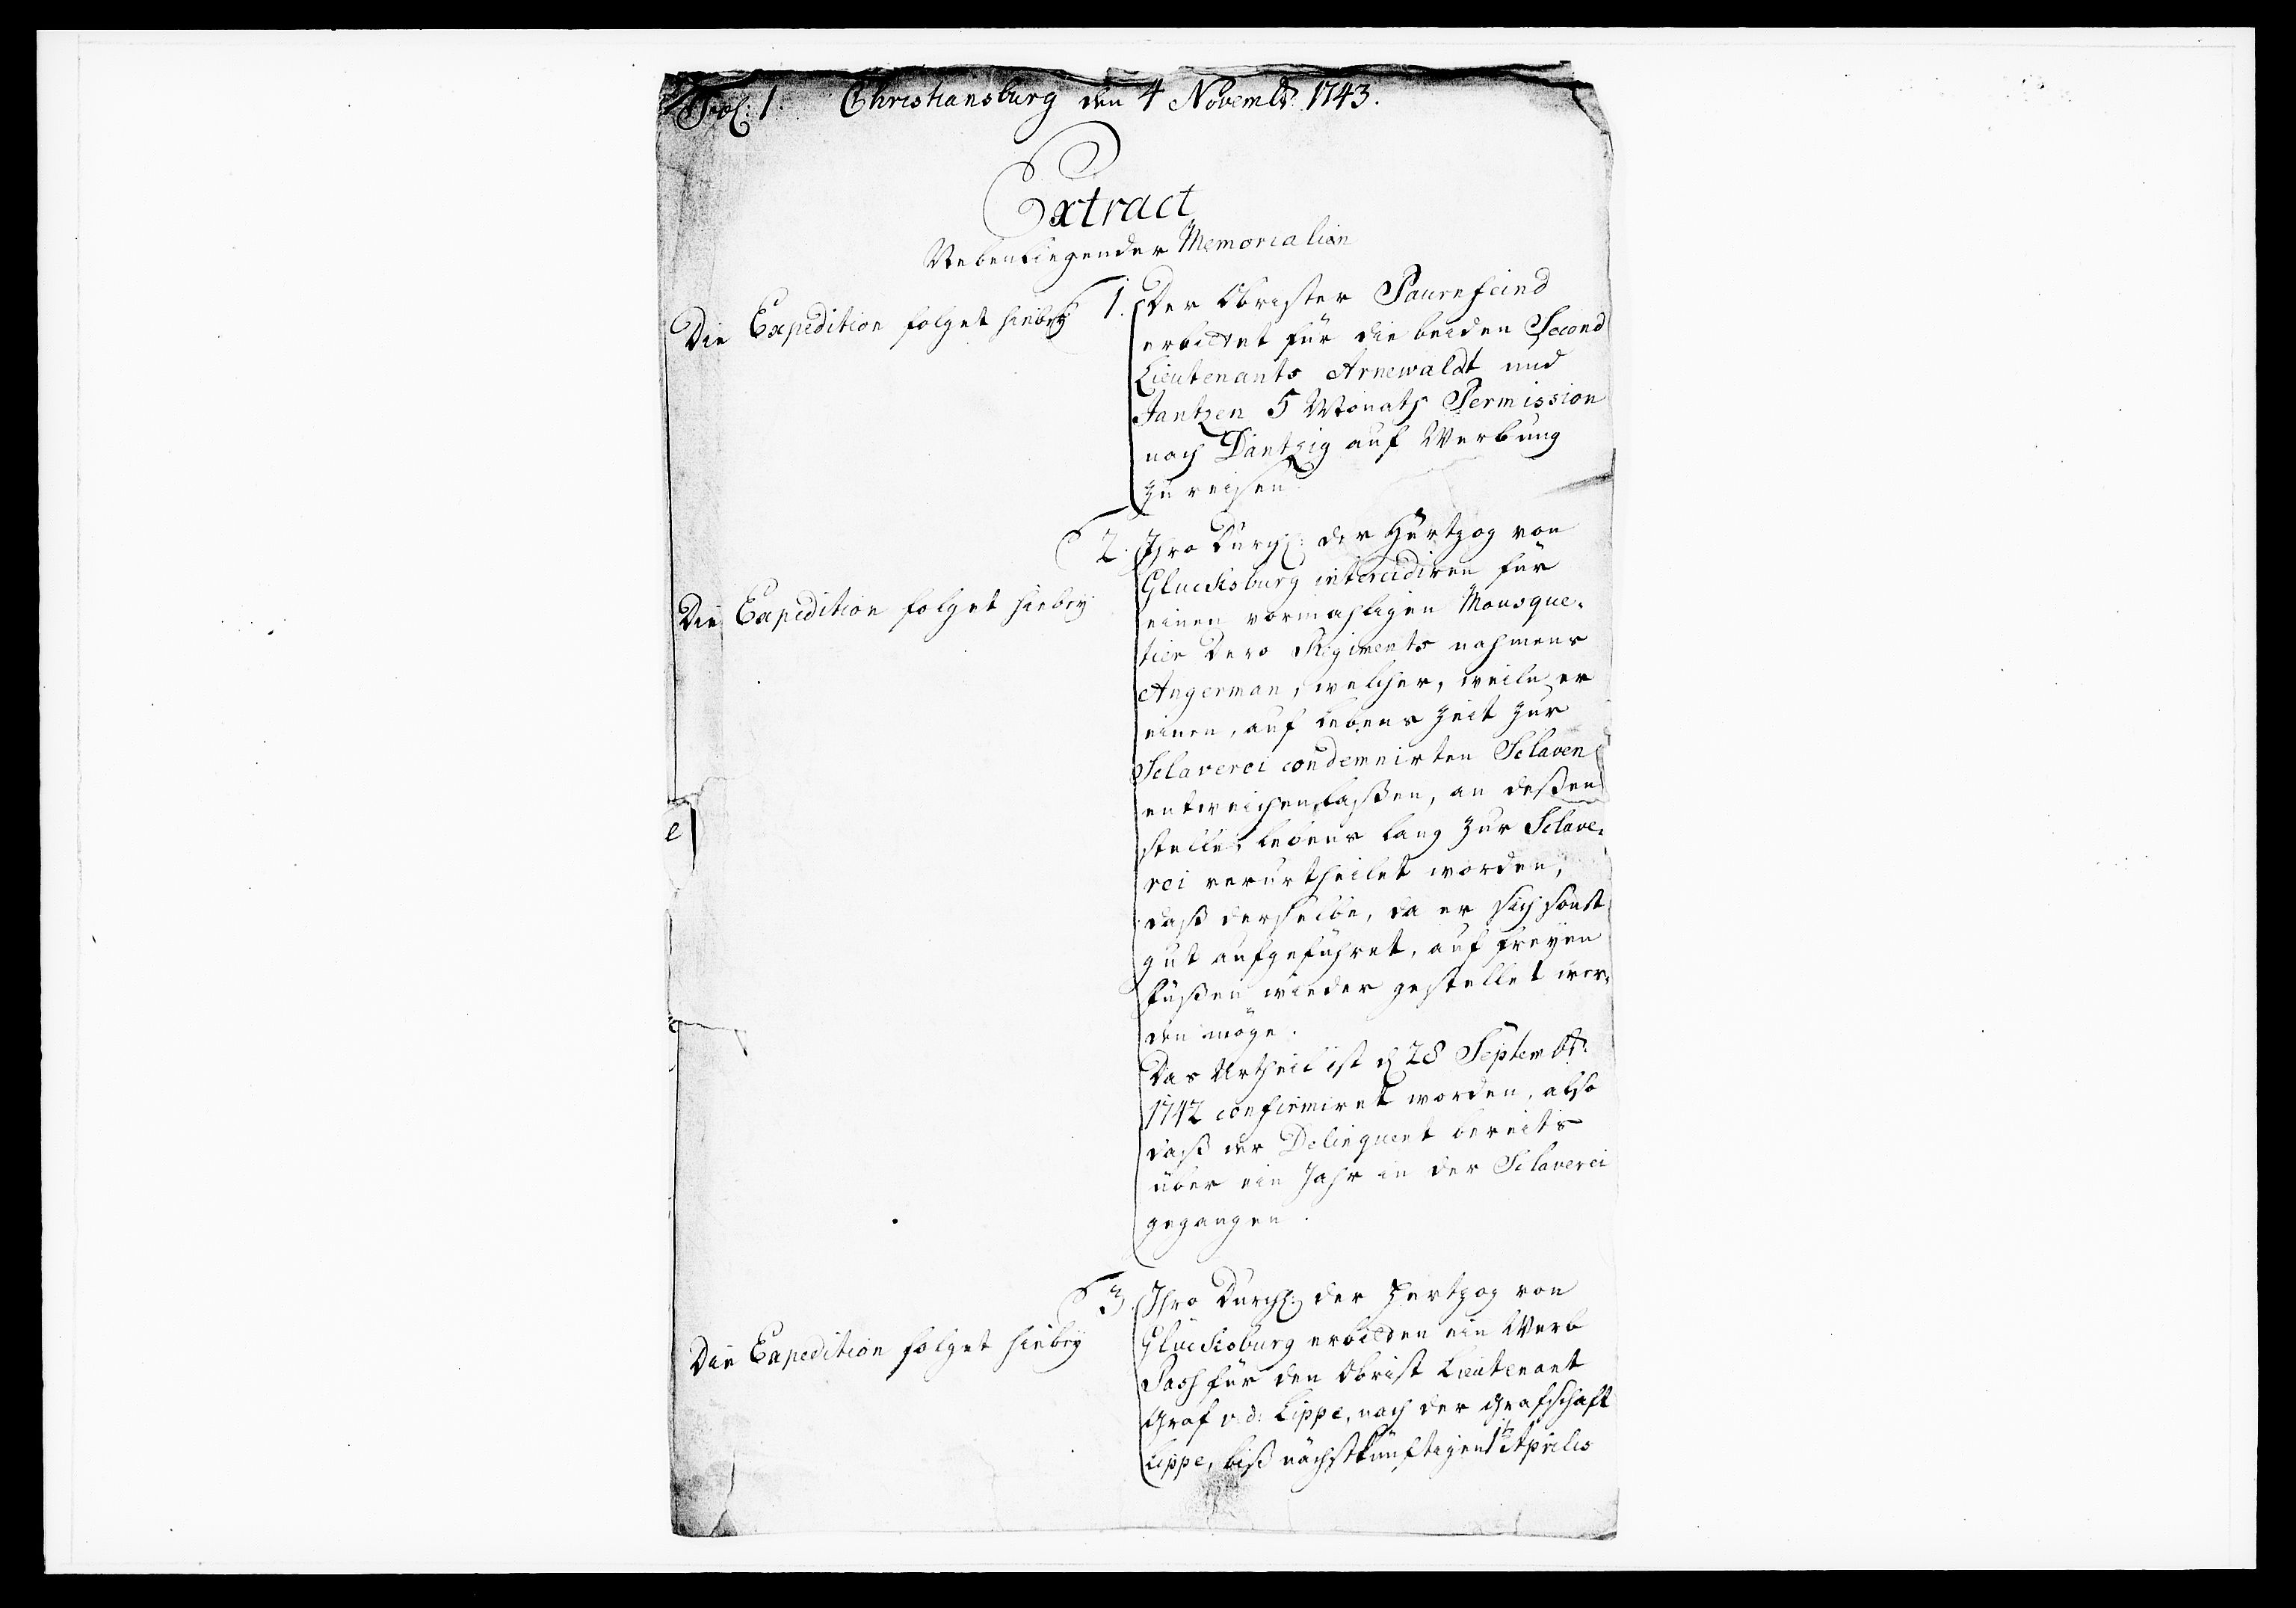 Fol: 1. Christiansburg den 4 Novembr: 1743.
Extract
Nebenliegender Memorialien
Die Expedition folget hiebey
1. Der Obrister Paurnfeind
erbittet für die beiden Second
Lieutenants Arnewaldt und
Jantzen 5 Monath Permission
nach Dantzig auf Werbung
zu reisen.
Die Expedition folget hiebey
2. Ihro Durchl: der Hertzog von
Glucksburg intercediren für
einen vormahligen Mousque-
tier Dero Regiments nahmens
Angerman, welcher, weiln er
einen, auf Lebens Zeit zur
Sclaverei condemnirten Sclaven
entweichen laßen, an deßen
stelle, lebens lang zur Sclave-
rei verurtheilet worden,
daß derselbe, da er sich sonst
gut aufgeführet, auf freyen
füßen wieder gestellet wer-
den möge.
Das Urtheil ist d 28 Septembr:
1742 confirmiret worden, also
daß der Delinquent bereits
über ein Jahr in der Sclaverei
gegangen.
Die Expedition folget hiebey
3. Ihro Durchl: der Hertzog von
Glucksburg erbitten ein Werb
Pass für den Obrist Lieutenant
Graf v. d. Lippe, nach der Grafschaft
Lippe, biß nächstkünftigen 1t Aprilis